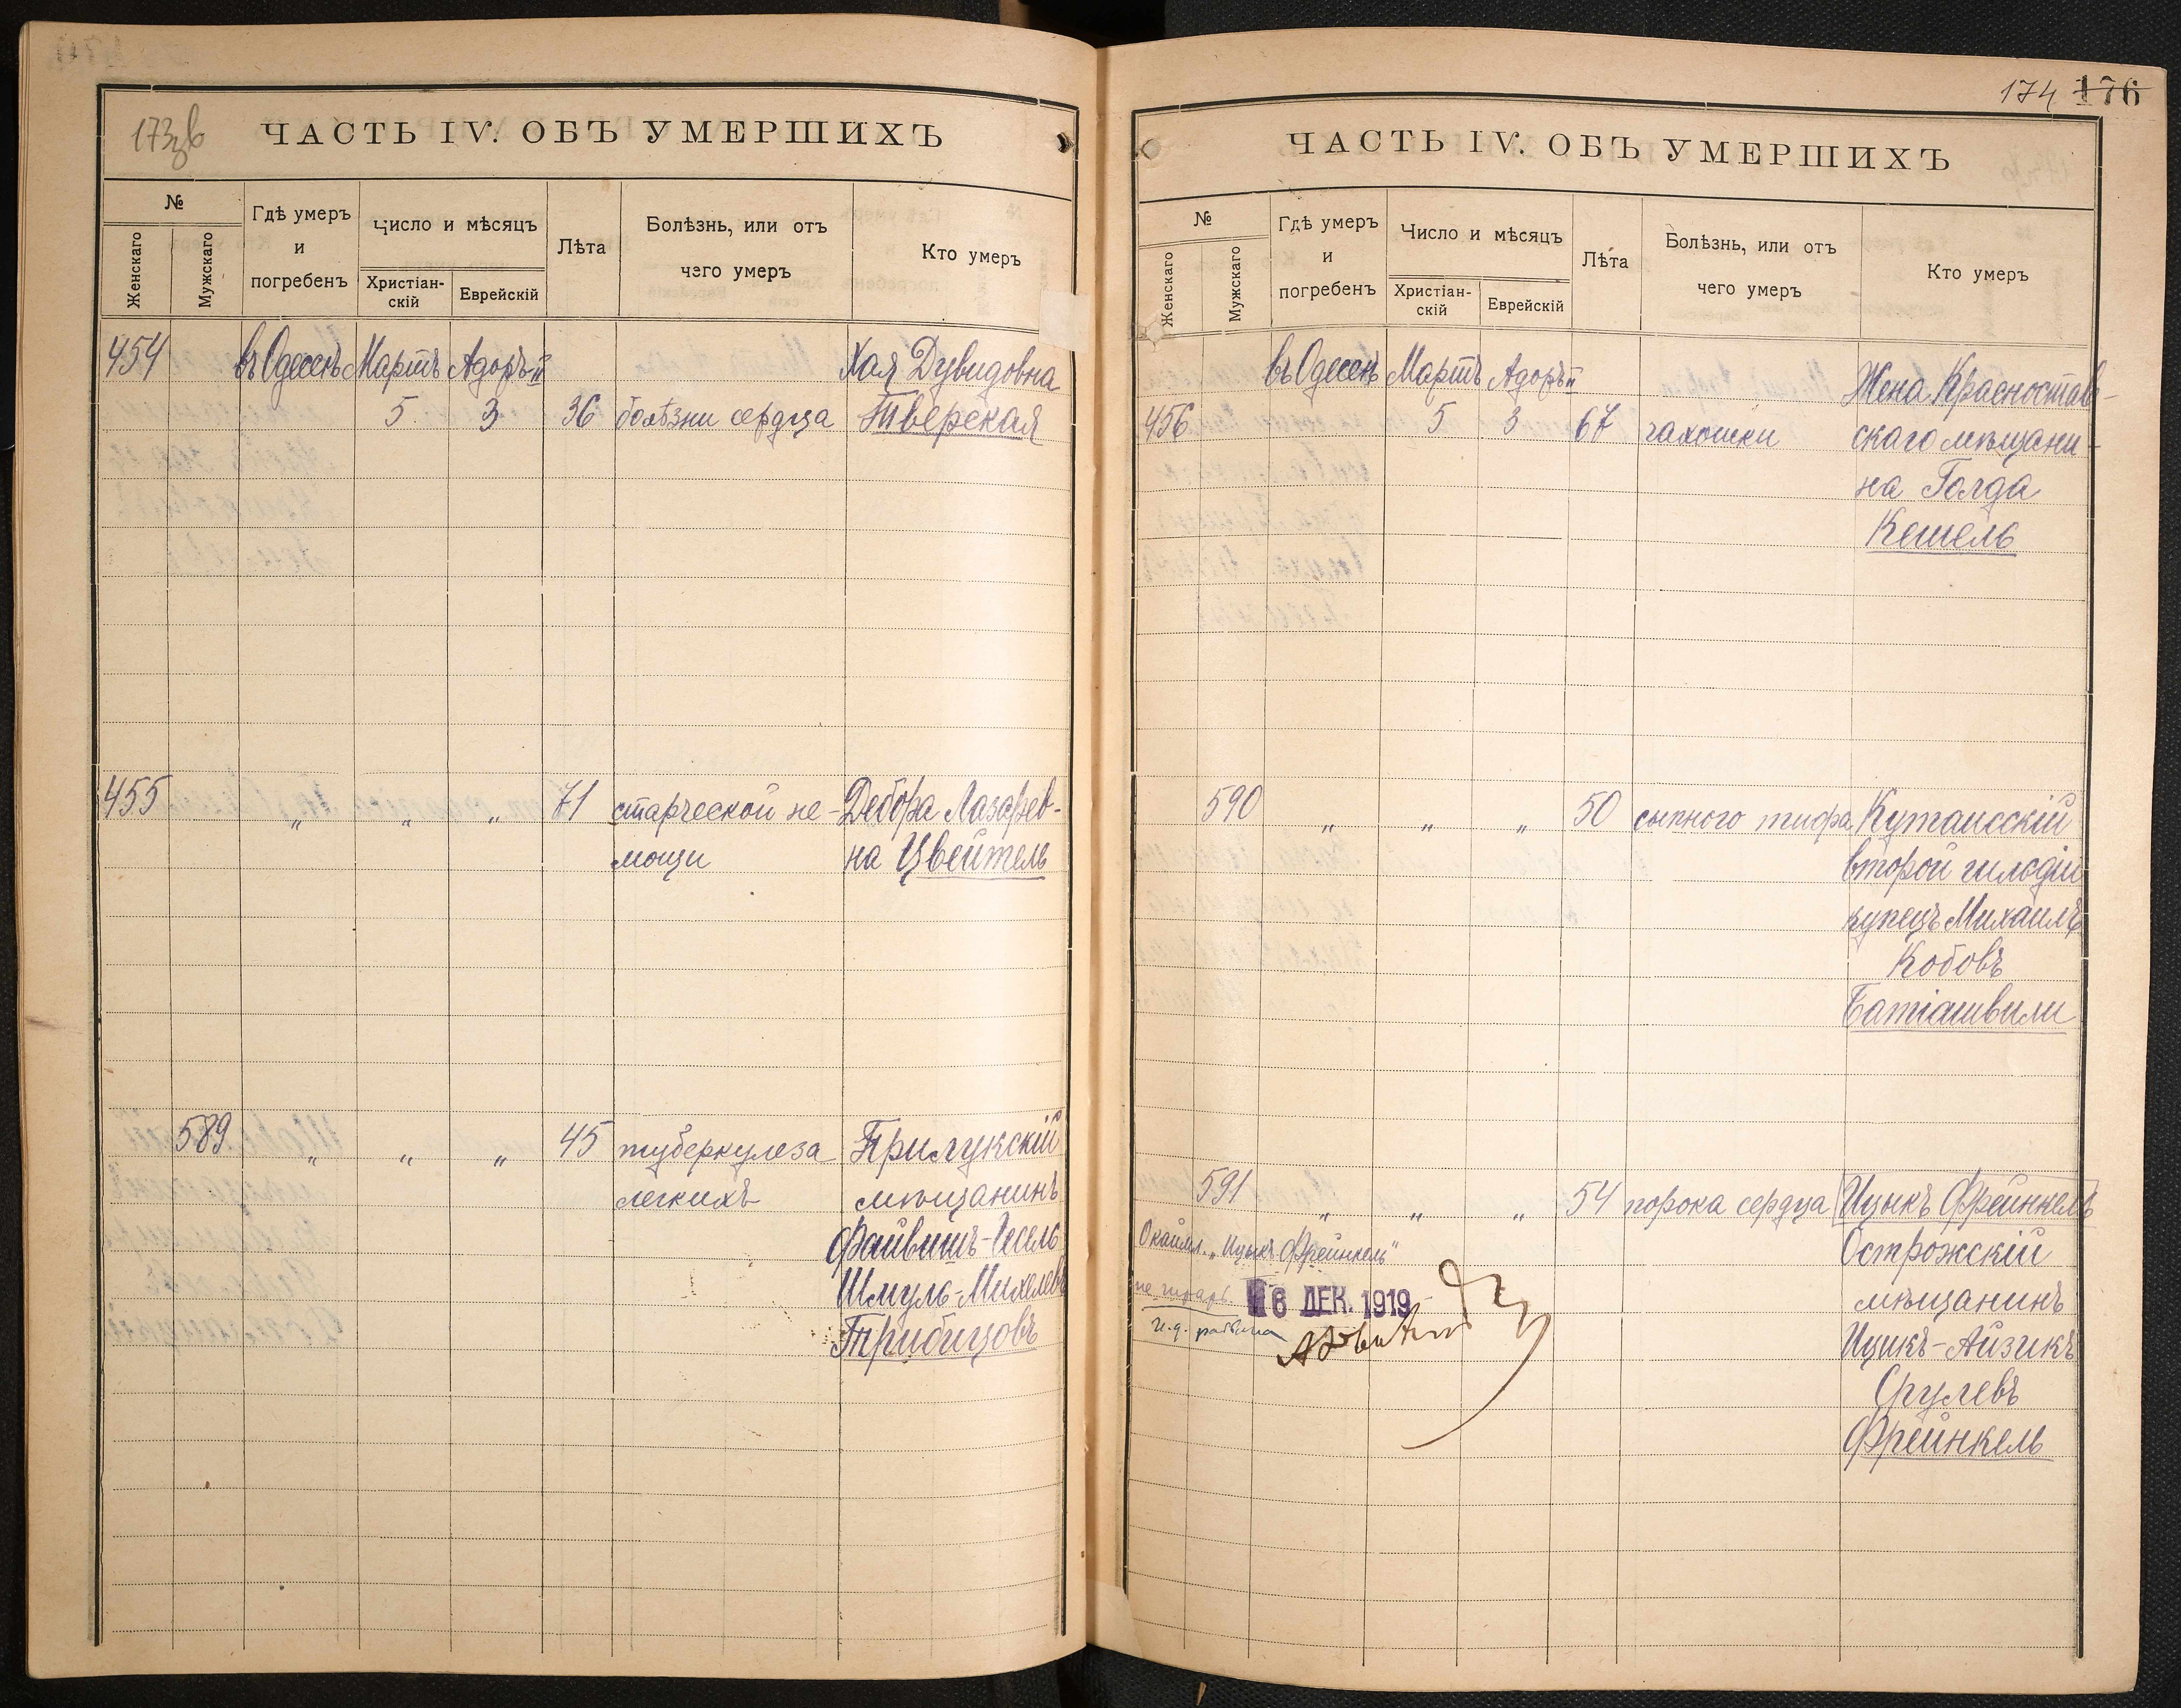 173об
ЧАСТЬ IV. ОБЪ УМЕРШИХЪ
№
Женскаго
Мужскаго
Гдѣ умеръ
и
погребенъ
Число и мѣсяцъ
Христіан-
скій
Еврейскій
Лѣта
Болѣзнь, или отъ
чего умеръ
Кто умеръ
454 въ Одессѣ Мартъ Адоръ II Хая Дувидовна
5 3 36 болѣзни сердца Тверская
455 " " " 71 старческой не- Дебора Лазарев-
мощи на Цвейтель
589 " " " 45 туберкулеза Прилукскій
легкихъ мѣщанинъ
Файвишъ-Іосель
Шмуль-Михелевъ
Трибицовъ
174 176
ЧАСТЬ IV. ОБЪ УМЕРШИХЪ
№
Женскаго
Мужскаго
Гдѣ умеръ
и
погребенъ
Число и мѣсяцъ
Христіан-
скій
Еврейскій
Лѣта
Болѣзнь, или отъ
чего умеръ
Кто умеръ
въ Одессѣ Мартъ Адоръ II Жена Красностав-
456 5 3 67 чахотки скаго мѣщани-
на Голда
Кешель
590 " " " 50 сыпного тифа Кутаисскій
второй гильдіи
купецъ Михаилъ
Кобовъ
Батіашвили
591 " " " 54 порока сердца Ицыкъ Фрейнкель
Окаймл. „Ицыкъ Фрейнкель" Острожскій
не читать 16 ДЕК. 1919 мѣщанинъ
И.д. раввина Ицикъ-Айзикъ
Срулевъ
Фрейнкель